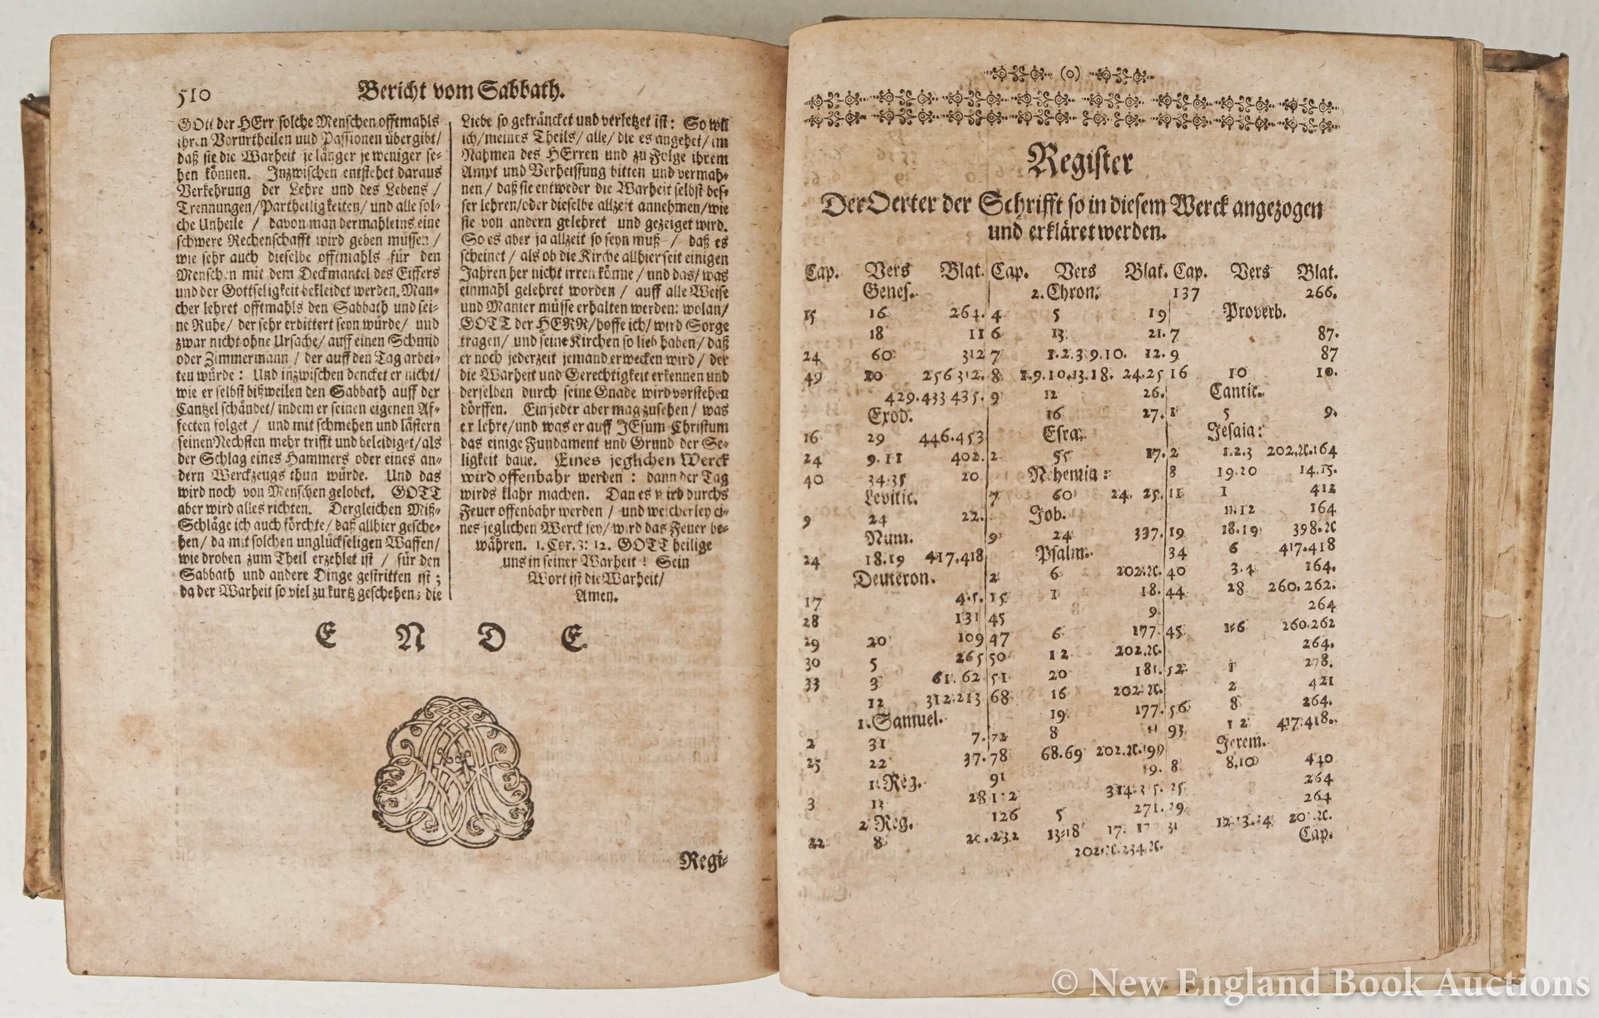 510 Bericht vom Sabbath.
GOtt der HErr solche Menschen offtmahls
ihren Vorurtheilen und Passionen übergibt/
daß sie die Warheit je länger je weniger se-
hen können. Inzwischen entstehet daraus
Verkehrung der Lehre und des Lebens/
Trennungen/Partheiligkeiten/und alle sol-
che Unheile / davon man dermahleins eine
schwere Rechenschafft wird geben müssen/
wie sehr auch dieselbe offtmahls für den
Menschen mit dem Deckmantel des Eiffers
und der Gottseligkeit bekleidet werden. Man-
cher lehret offtmahls den Sabbath und sei-
ne Ruhe/ der sehr erbittert seyn würde/ und
zwar nicht ohne Ursache/ auff einen Schmid
oder Zimmermann / der auff den Tag arbei-
ten würde: Und inzwischen dencket er nicht/
wie er selbst bißweilen den Sabbath auff der
Cantzel schändet/ indem er seinen eigenen Af-
fecten folget / und mit schmehen und lästern
seinen Nechsten mehr trifft und beleidiget/als
der Schlag eines Hammers oder eines an-
dern Werckzeugs thun würde. Und das
wird noch von Menschen gelobet. GOTT
aber wird alles richten. Dergleichen Miß-
Schläge ich auch förchte/ daß allhier gesche-
hen/ da mit solchen unglückseligen Waffen/
wie droben zum Theil erzehlet ist / für den
Sabbath und andere Dinge gestritten ist;
da der Warheit so viel zu kurtz geschehen; die
Liebe so gekräncket und verletzet ist: So will
ich/meines Theils/ alle/ die es angehet/ im
Nahmen des HErren und zu Folge ihrem
Ampt und Verheissung bitten und vermah-
nen/ daß sie entweder die Warheit selbst bes-
ser lehren/oder dieselbe allzeit annehmen/wie
sie von andern gelehret und gezeiget wird.
So es aber ja allzeit so seyn muß / daß es
scheinet/ als ob die Kirche allhier seit einigen
Jahren her nicht irren könne / und das/ was
einmahl gelehret worden / auff alle Weise
und Manier müsse erhalten werden: wolan/
GOTT der HERR/hoffe ich/ wird Sorge
tragen/ und seine Kirchen so lieb haben/ daß
er noch jederzeit jemand erwecken wird / der
die Warheit und Gerechtigkeit erkennen und
derselben durch seine Gnade wird vorstehen
dörffen. Ein jeder aber mag zusehen / was
er lehre/und was er auff JEsum Christum
das einige Fundament und Grund der Se-
ligkeit baue. Eines jeglichen Werck
wird offenbahr werden: dann der Tag
wirds klahr machen. Dan es wird durchs
Feuer offenbahr werden / und welcherley ei-
nes jeglichen Werck sey/ wird das Feuer be-
währen. 1. Cor. 3: 12. GOTT heilige
uns in seiner Warheit! Sein
Wort ist die Warheit/
Amen.
E N D E.
Regi-
(o)
Register
Der Oerter der Schrifft so in diesem Werck angezogen
und erkläret werden.
Cap. Vers Blat.
Genes.
15 16 264.
18 11
24 60 312
49 10 256 312.
429.433 435.
Exod.
16 29 446.453
24 9.11 402.
40 34.35 20
Levitic.
9 24 22.
Num.
24 18.19 417.418
Deuteron.
17 4.5.
28 131
29 20 109
30 5 265
33 3 61.62
12 312.213
1. Samuel.
2 31 7.
25 22 37.
1. Reg.
3 13 28
2 Reg.
22 8 20.
Cap. Vers Blat.
2. Chron.
4 5 19
6 13 21.
7 1.2.3.9.10. 12.
8 1.9.10.13.18. 24.25
9 12 26.
16 27.
Esra.
2 55 17.
Nehemia:
7 60 24. 25.
Job.
9 24 337.
Psalm.
2 6 202.2c.
15 1 18.
45 9
47 6 177.
50 12 202.2c.
51 20 181.
68 16 202.2c.
19 177.
72 8
78 68.69 202.2c.199
91 19.
126 5 271.
232 13.18 17.
202.2c.234.2c.
Cap. Vers Blat.
137 266.
Proverb.
7 87.
9 87
16 10 10.
Cantic.
1 5 9.
Jesaia:
2 1.2.3 202.2c.164
8 19.20 14.15.
11 1 412
11.12 164
19 18.19 398.2c
34 6 417.418
40 3.4 164.
44 28 260.262.
264
45 1-6 260.262
264.
52 1 278.
2 421
56 8 264.
93 12 417.418.
Jerem.
8 8.10 440
25 264
29 264
31 12.13.14 20
Cap.
© New England Book Auctions